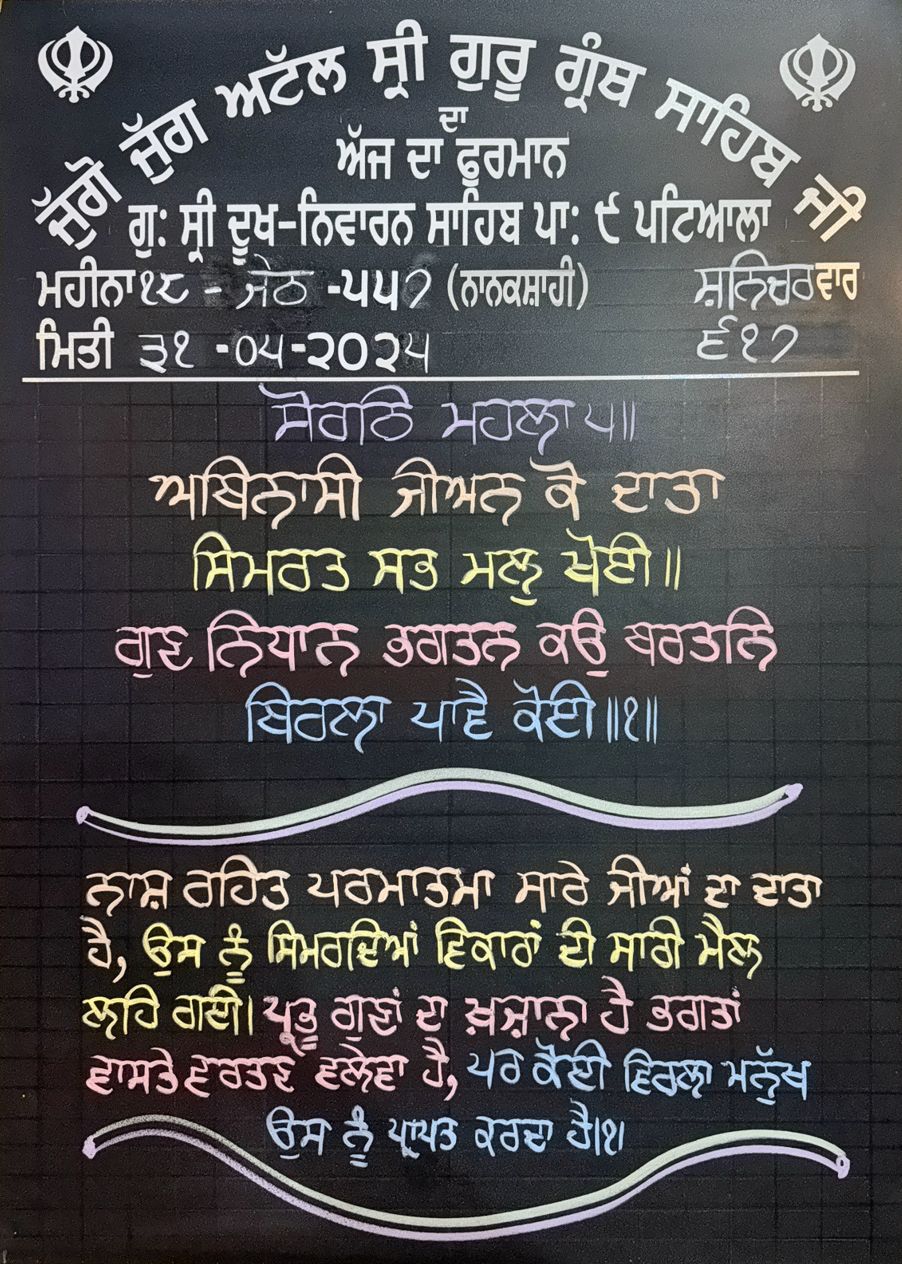 ਜੁੱਗੋ ਜੁੱਗ ਅਟੱਲ ਸ੍ਰੀ ਗੁਰੂ ਗ੍ਰੰਥ ਸਾਹਿਬ ਜੀ
ਦਾ
ਅੱਜ ਦਾ ਫੂਰਮਾਨ
ਗੁ: ਸ੍ਰੀ ਦੂਖ-ਨਿਵਾਰਨ ਸਾਹਿਬ ਪਾ: ੯ ਪਟਿਆਲਾ
ਮਹੀਨਾ ੧੮ - ਜੇਠ -੫੫੭ (ਨਾਨਕਸ਼ਾਹੀ) ਸ਼ਨਿਚਰਵਾਰ
ਮਿਤੀ ੩੧ -੦੫-੨੦੨੫ ੬੧੭
ਸੋਰਠਿ ਮਹਲਾ ੫॥
ਅਬਿਨਾਸੀ ਜੀਅਨ ਕੋ ਦਾਤਾ
ਸਿਮਰਤ ਸਭ ਮਲੁ ਖੋਈ॥
ਗੁਣ ਨਿਧਾਨ ਭਗਤਨ ਕਉ ਬਰਤਨਿ
ਬਿਰਲਾ ਪਾਵੈ ਕੋਈ॥੧॥
ਨਾਸ਼ ਰਹਿਤ ਪਰਮਾਤਮਾ ਸਾਰੇ ਜੀਆਂ ਦਾ ਦਾਤਾ
ਹੈ, ਉਸ ਨੂੰ ਸਿਮਰਦਿਆਂ ਵਿਕਾਰਾਂ ਦੀ ਸਾਰੀ ਮੈਲ
ਲਹਿ ਗਈ। ਪ੍ਰਭੂ ਗੁਣਾਂ ਦਾ ਖ਼ਜ਼ਾਨਾ ਹੈ ਭਗਤਾਂ
ਵਾਸਤੇ ਵਰਤਣ ਵਲੇਵਾ ਹੈ, ਪਰ ਕੋਈ ਵਿਰਲਾ ਮਨੁੱਖ
ਉਸ ਨੂੰ ਪ੍ਰਾਪਤ ਕਰਦਾ ਹੈ।੧।